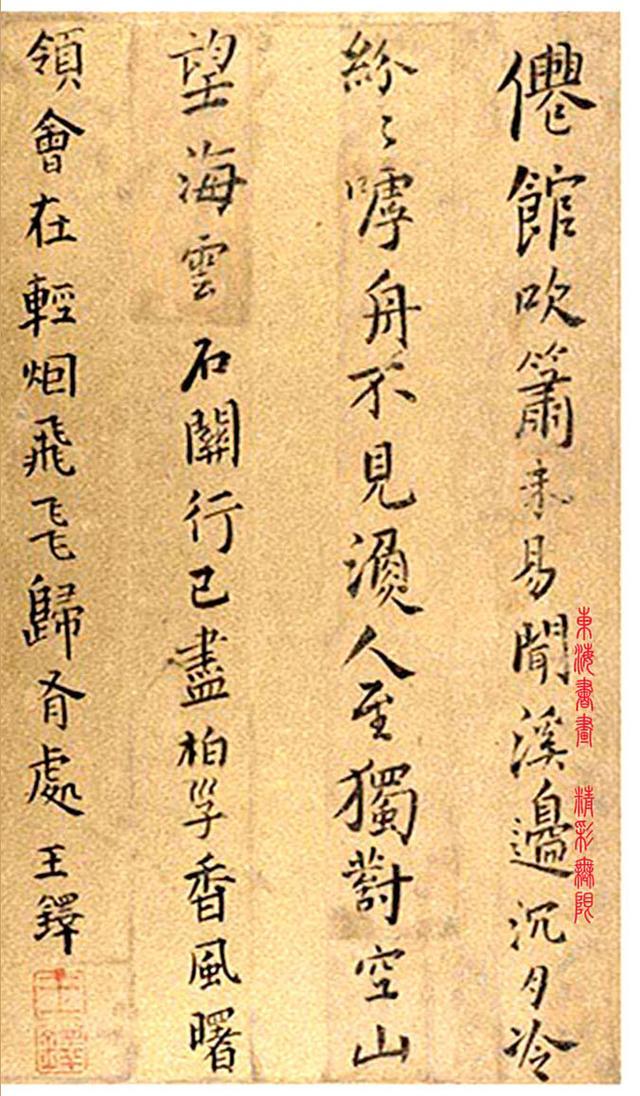 僊館吹簫未易聞溪邊沉月冷
紛〻嘑舟不見漁人至獨對空山
望海雲石關行已盡柏𡿹香風曙
領會在輕烟飛飛歸有處王鐸
王鐸
東海書畫 精彩無限